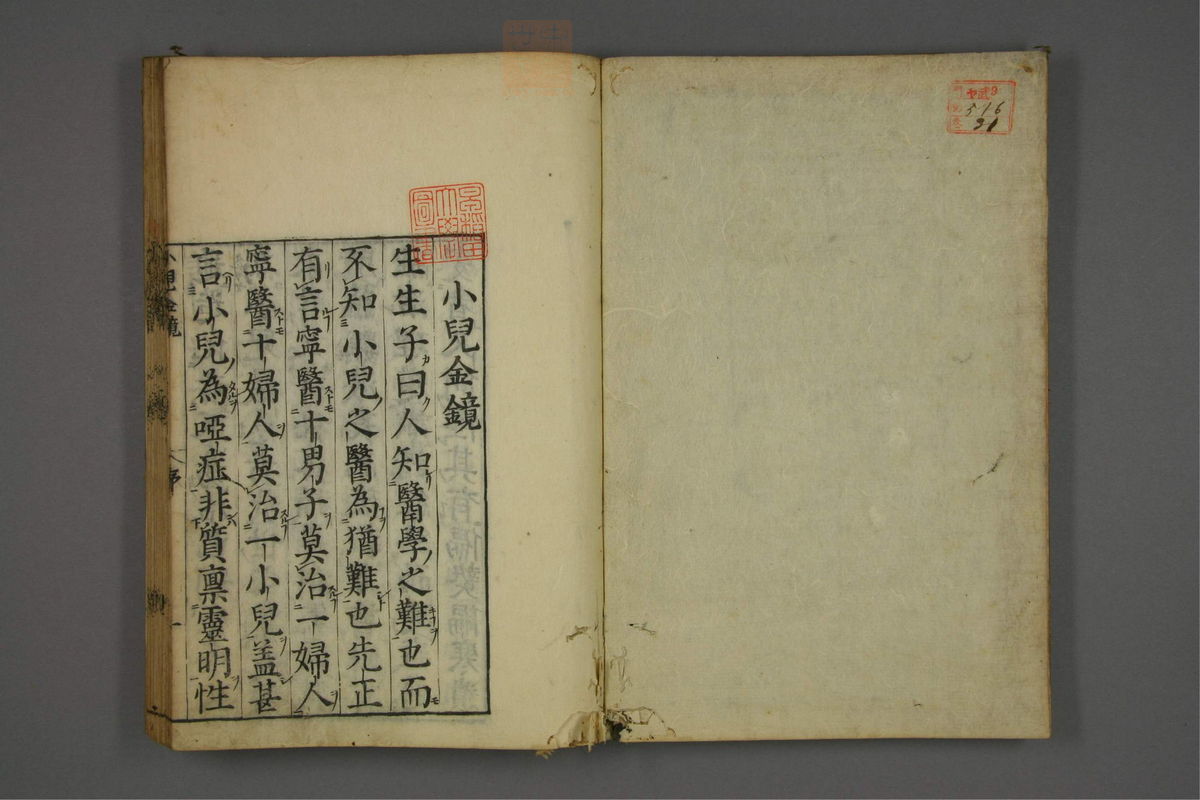 小兒金鏡
生生子曰人知醫學之難也而
不知小兒之醫為猶難也先正
有言寧醫十男子莫治一婦人
寧醫十婦人莫治一小兒蓋甚
言小兒為啞症非質稟靈明性
小兒金鏡
序
一
516
21